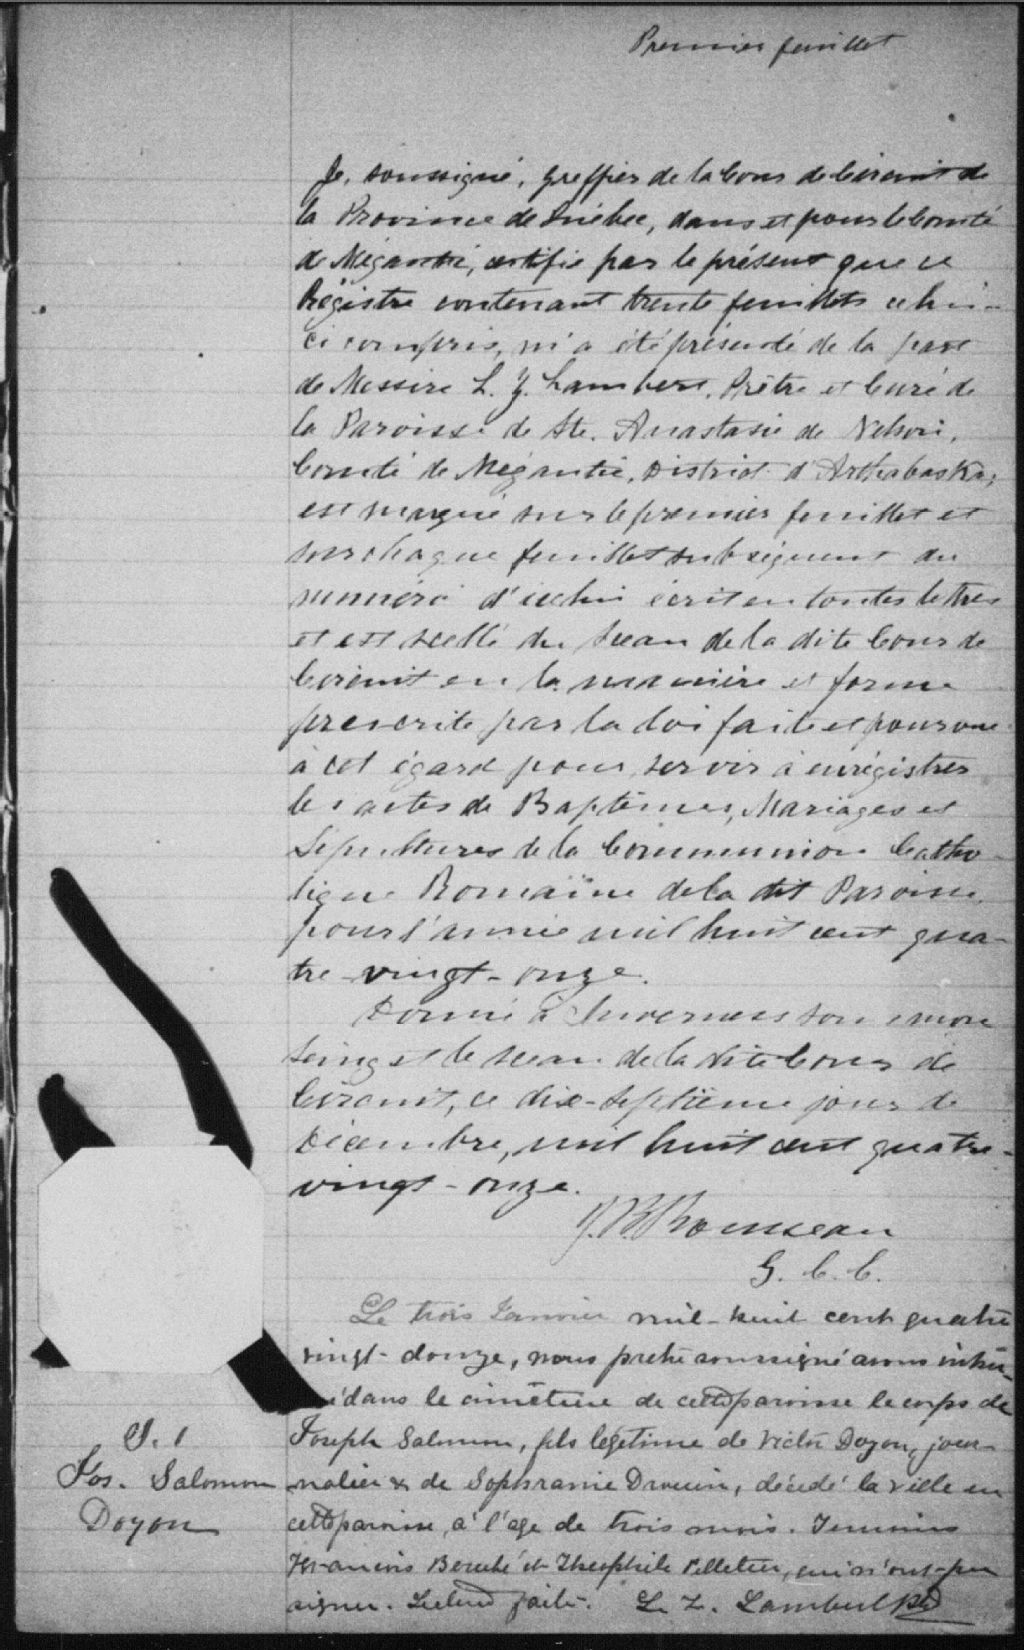 Premier feuillet
Je, soussigné, greffier de la Cour de Circuit de
la Province de Québec, dans et pour le Comté
de Mégantic, certifie par le présent que ce
Régistre contenant trente feuillets celui-
ci compris, m'a été présenté de la part
de Messire L. Z. Lambert, Prêtre et Curé de
la Paroisse de Ste. Anastasie de Nelson,
Comté de Mégantic, District d'Arthabaska,
est marqué sur le premier feuillet et
sur chaque feuillet subséquent du
numéro d'icelui écrit en toutes lettres
et est scellé du sceau de la dite Cour de
Circuit en la manière et forme
prescrite par la loi faite et pourvue
à cet égard pour servir à enrégistrer
les actes de Baptêmes, Mariages et
Sépultures de la Communion Catho-
lique Romaine de la dit Paroisse
pour l'année mil huit cent qua-
tre-vingt-onze.
Donné à Inverness sous mon
seing et le sceau de la dite Cour de
Circuit, ce dix-septième jour de
Décembre, mil huit cent quatre-
vingt-onze.
J. B. Rousseau
G. C. C.
Le trois Janvier mil-huit cent quatre
vingt-douze, nous prêtre soussigné avons inhu-
é dans le cimetière de cette paroisse le corps de
S. 1
Jos. Salomon
Doyon
Joseph Salomon, fils légitime de Victor Doyon, jour-
nalier & de Sophranie Drouin, décédé la veille en
cette paroisse, à l'age de trois mois. Temoins
François Berubé et Theophile Pelletier, qui n'ont pu
signer. Lecture faite. L. Z. Lambert Ptre